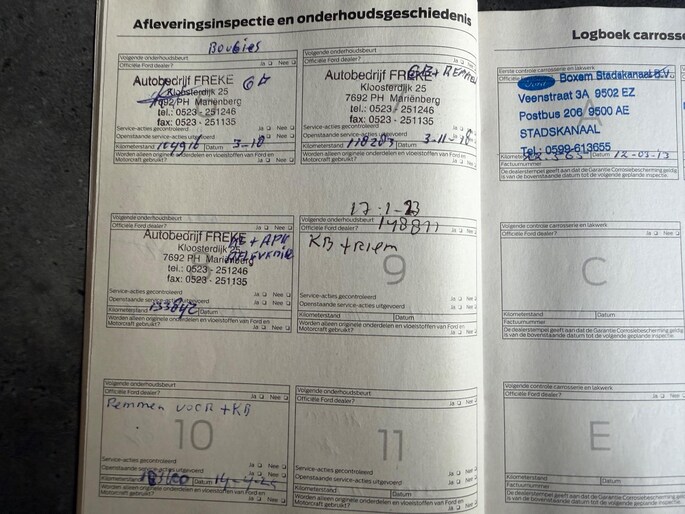 Afleveringsinspectie en onderhoudsgeschiedenis
Boubies
Volgende onderhoudsbeurt
Officiële Ford dealer? Ja Nee
Autobedrijf FREKE
Kloosterdijk 25
7692 PH Mariënberg
tel.: 0523 - 251246
fax: 0523 - 251135
Service-acties gecontroleerd
Openstaande service-acties uitgevoerd Ja Nee
Kilometerstand Datum 3-18
Worden alleen originele onderdelen en vloeistoffen van Ford en
Motorcraft gebruikt? Ja Nee
Volgende onderhoudsbeurt
Officiële Ford dealer? Ja Nee
Autobedrijf FREKE
GB + REMMEN
Kloosterdijk 25
7692 PH Mariënberg
tel.: 0523 - 251246
fax: 0523 - 251135
Service-acties gecontroleerd Ja Nee
Openstaande service-acties uitgevoerd
Kilometerstand 118283 Datum
Worden alleen originele onderdelen en vloeistoffen van Ford en
Motorcraft gebruikt? Ja Nee
Volgende onderhoudsbeurt
Officiële Ford dealer? Ja Nee
Autobedrijf FREKE
+ APK
Kloosterdijk 25
7692 PH Mariënberg
tel.: 0523 - 251246
fax: 0523 - 251135
Service-acties gecontroleerd Ja Nee
Openstaande service-acties uitgevoerd Ja Nee
Kilometerstand 133842 Datum
Worden alleen originele onderdelen en vloeistoffen van Ford en
Motorcraft gebruikt? Ja Nee
17-1-23
148871
Volgende onderhoudsbeurt
Officiële Ford dealer? Ja Nee
KB + Riem
9
Service-acties gecontroleerd Ja Nee
Openstaande service-acties uitgevoerd Ja Nee
Kilometerstand Datum
Worden alleen originele onderdelen en vloeistoffen van Ford en
Motorcraft gebruikt? Ja Nee
Volgende onderhoudsbeurt
Officiële Ford dealer? Ja Nee
Remmen voor + KB
10
Service-acties gecontroleerd Ja Nee
Openstaande service-acties uitgevoerd Ja Nee
Kilometerstand Datum
Worden alleen originele onderdelen en vloeistoffen van Ford en
Motorcraft gebruikt? Ja Nee
Volgende onderhoudsbeurt
Officiële Ford dealer? Ja Nee
11
Service-acties gecontroleerd Ja Nee
Openstaande service-acties uitgevoerd Ja Nee
Kilometerstand Datum
Worden alleen originele onderdelen en vloeistoffen van Ford en
Motorcraft gebruikt? Ja Nee
Logboek carrosse
Eerste controle carrosserie en lakwerk
Ford Boxem Stadskanaal B.V.
Veenstraat 3A 9502 EZ
A
Postbus 206 9500 AE
STADSKANAAL
Tel: 0599-613655
12-03-13
Factuurnummer
De dealerstempel geeft aan dat de Garantie Corrosiebescherming geldig
is van de bovenstaande datum tot de volgende geplande inspectie.
Volgende controle carrosserie en lakwerk
Officiële Ford dealer? Ja
C
Kilometerstand Datum
Factuurnummer
De dealerstempel geeft aan dat de Garantie Corrosiebescherming geldig
is van de bovenstaande datum tot de volgende geplande inspectie.
Volgende controle carrosserie en lakwerk
Officiële Ford dealer? Ja
E
Kilometerstand Datum
Factuurnummer
De dealerstempel geeft aan dat de Garantie Corrosiebescherming geldig
is van de bovenstaande datum tot de volgende geplande inspectie.